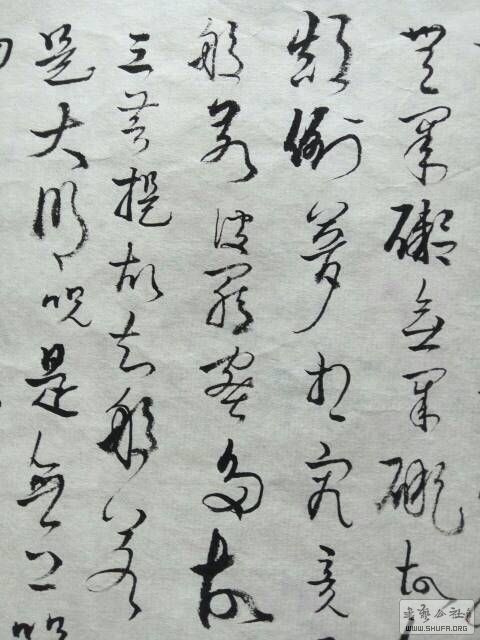 無罣礙無罣礙故
顛倒夢想究竟
般若波羅蜜多故
三菩提故知般若
是大明呪是無上呪
書藝公社
WWW.SHUFA.ORG